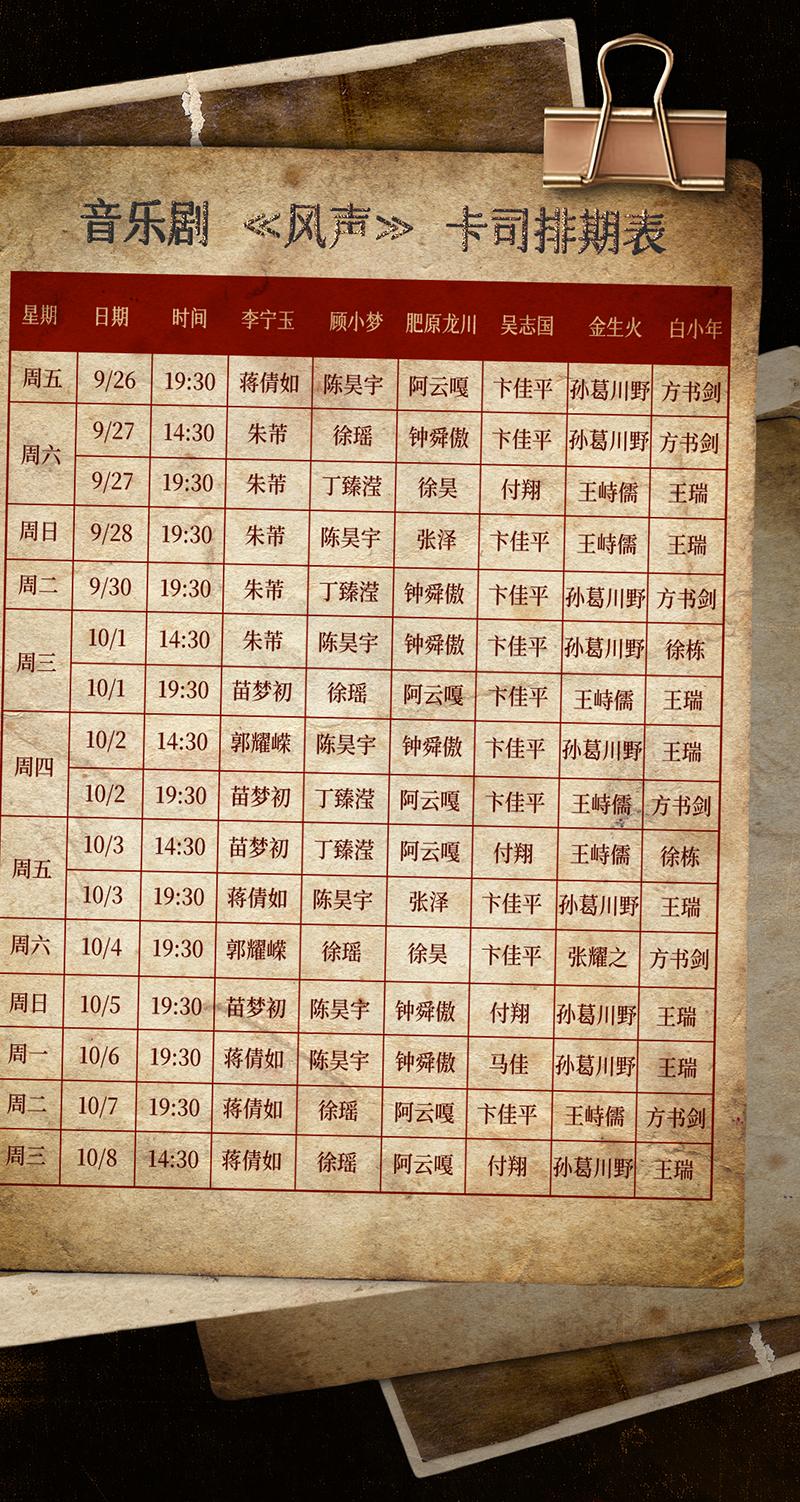 音乐剧 《风声》 卡司排期表
星期 日期 时间 李宁玉 顾小梦 肥原龙川 吴志国 金生火 白小年
周五 9/26 19:30 蒋倩如 陈昊宇 阿云嘎 卞佳平 孙葛川野 方书剑
周六 9/27 14:30 朱芾 徐瑶 钟舜傲 卞佳平 孙葛川野 方书剑
9/27 19:30 朱芾 丁臻滢 徐昊 付翔 王峙儒 王瑞
周日 9/28 19:30 朱芾 陈昊宇 张泽 卞佳平 王峙儒 王瑞
周二 9/30 19:30 朱芾 丁臻滢 钟舜傲 卞佳平 孙葛川野 方书剑
周三 10/1 14:30 朱芾 陈昊宇 钟舜傲 卞佳平 孙葛川野 徐栋
10/1 19:30 苗梦初 徐瑶 阿云嘎 卞佳平 王峙儒 王瑞
周四 10/2 14:30 郭耀嵘 陈昊宇 钟舜傲 卞佳平 孙葛川野 王瑞
10/2 19:30 苗梦初 丁臻滢 阿云嘎 卞佳平 王峙儒 方书剑
周五 10/3 14:30 苗梦初 丁臻滢 阿云嘎 付翔 王峙儒 徐栋
10/3 19:30 蒋倩如 陈昊宇 张泽 卞佳平 孙葛川野 王瑞
周六 10/4 19:30 郭耀嵘 徐瑶 徐昊 卞佳平 张耀之 方书剑
周日 10/5 19:30 苗梦初 陈昊宇 钟舜傲 付翔 孙葛川野 王瑞
周一 10/6 19:30 蒋倩如 陈昊宇 钟舜傲 马佳 孙葛川野 王瑞
周二 10/7 19:30 蒋倩如 徐瑶 阿云嘎 卞佳平 王峙儒 方书剑
周三 10/8 14:30 蒋倩如 徐瑶 阿云嘎 付翔 孙葛川野 王瑞